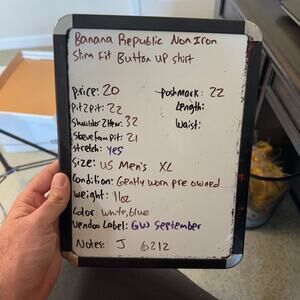 Banana Republic Non Iron
Slim Fit Button up shirt
price: 20
poshmark: 22
Pit2pit: 22
Length:
Shoulder2Hem: 32
Waist:
Sleeve from pit: 21
stretch: yes
Size: US Men's XL
Condition: Gently worn pre owned
weight: 11oz
Color: white, blue
Vendoo Label: GW September
Notes: J 6212